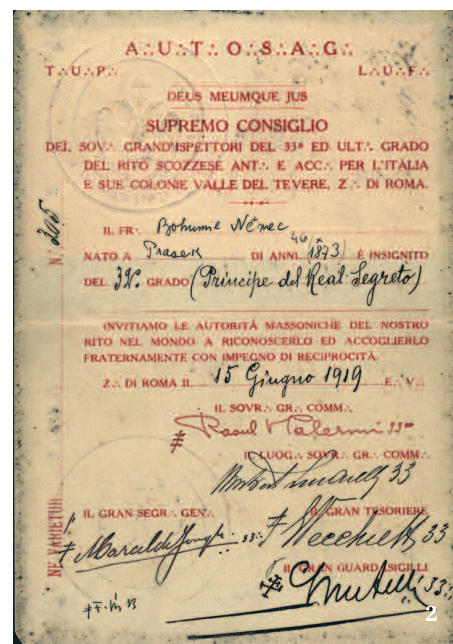 A∴U∴T∴O∴S∴A∴G∴
T∴U∴P∴ L∴U∴F∴
DEUS MEUMQUE JUS
SUPREMO CONSIGLIO
DEI SOV∴ GRAND'ISPETTORI DEL 33º ED ULT∴ GRADO
DEL RITO SCOZZESE ANT∴ E ACC∴ PER L'ITALIA
E SUE COLONIE VALLE DEL TEVERE, Z∴ DI ROMA.
N.º 205
IL FR∴ Bohumil Němec
NATO A Prasek DI ANNI 46 (1873) È INSIGNITO
DEL 32º GRADO (Principe del Real Segreto)
INVITIAMO LE AUTORITÀ MASSONICHE DEL NOSTRO
RITO NEL MONDO A RICONOSCERLO ED ACCOGLIERLO
FRATERNAMENTE CON IMPEGNO DI RECIPROCITÀ.
Z∴ DI ROMA IL 15 Giugno 1919 E∴V∴
IL SOVR∴ GR∴ COMM∴
Raoul Palermi 33
IL LUOG∴ SOVR∴ GR∴ COMM∴
33
IL GRAN SEGR∴ GEN∴ IL GRAN TESORIERE
33 33
NE VARIETUR
IL GRAN GUARDASIGILLI
33
2